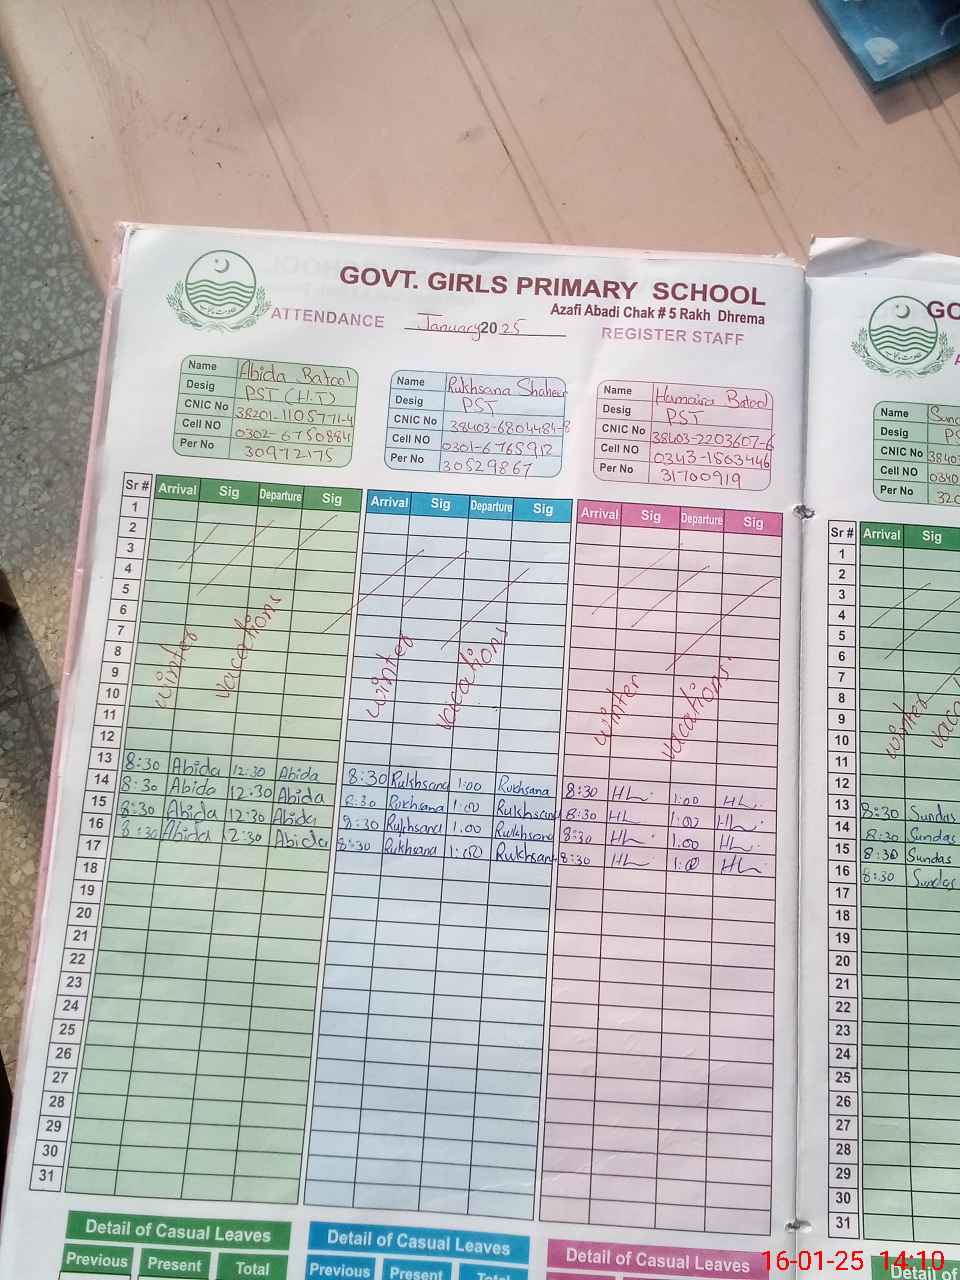 GOVT. GIRLS PRIMARY SCHOOL
Azafi Abadi Chak # 5 Rakh Dhrema
ATTENDANCE January 2025 REGISTER STAFF
Name Abida Batool
Desig PST (H.T)
CNIC No 38201-1105771-4
Cell NO 0302-6750884
Per No 30972175
Name Rukhsana Shaheen
Desig PST
CNIC No 38403-6804484-8
Cell NO 0301-6765912
Per No 30529867
Name Humaira Batool
Desig PST
CNIC No 38403-2203607-6
Cell NO 0343-1563446
Per No 31700919
Sr # Arrival Sig Departure Sig Arrival Sig Departure Sig Arrival Sig Departure Sig
1
2
3
4
5
6
7
8
9
10
11
12
winter vacations winter vacations winter vacations
13 8:30 Abida 12:30 Abida 8:30 Rukhsana 1:00 Rukhsana 8:30 1:00
14 8:30 Abida 12:30 Abida 8:30 Rukhsana 1:00 Rukhsana 8:30 1:00
15 8:30 Abida 12:30 Abida 8:30 Rukhsana 1:00 Rukhsana 8:30 1:00
16 8:30 Abida 12:30 Abida 8:30 Rukhsana 1:00 Rukhsana 8:30 1:00
17
18
19
20
21
22
23
24
25
26
27
28
29
30
31
Detail of Casual Leaves Detail of Casual Leaves Detail of Casual Leaves
Previous Present Total Previous Present Total
GO
Name
Desig
CNIC No 38403
Cell NO 0340
Per No 320
Sr # Arrival Sig
1
2
3
4
5
6
7
8
9
10
11
12
winter
13 8:30 Sundas
14 8:30 Sundas
15 8:30 Sundas
16 8:30 Sundas
17
18
19
20
21
22
23
24
25
26
27
28
29
30
31
Detail of
16-01-25 14:10